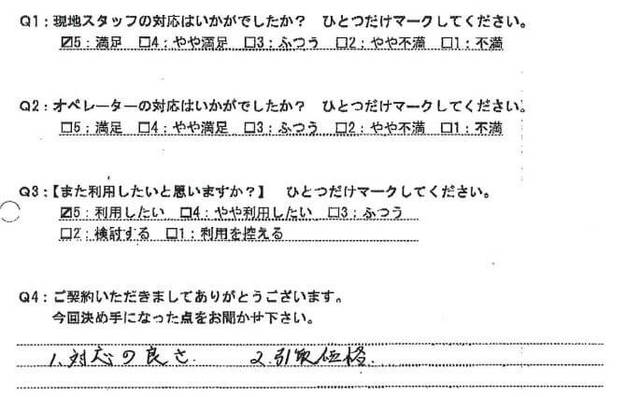 Q1：現地スタッフの対応はいかがでしたか？ ひとつだけマークしてください。
☑5：満足 □4：やや満足 □3：ふつう □2：やや不満 □1：不満
Q2：オペレーターの対応はいかがでしたか？ ひとつだけマークしてください。
□5：満足 □4：やや満足 □3：ふつう □2：やや不満 □1：不満
Q3：【また利用したいと思いますか？】 ひとつだけマークしてください。
☑5：利用したい □4：やや利用したい □3：ふつう
□2：検討する □1：利用を控える
Q4：ご契約いただきましてありがとうございます。
今回決め手になった点をお聞かせ下さい。
1.対応の良さ. 2.引取価格.